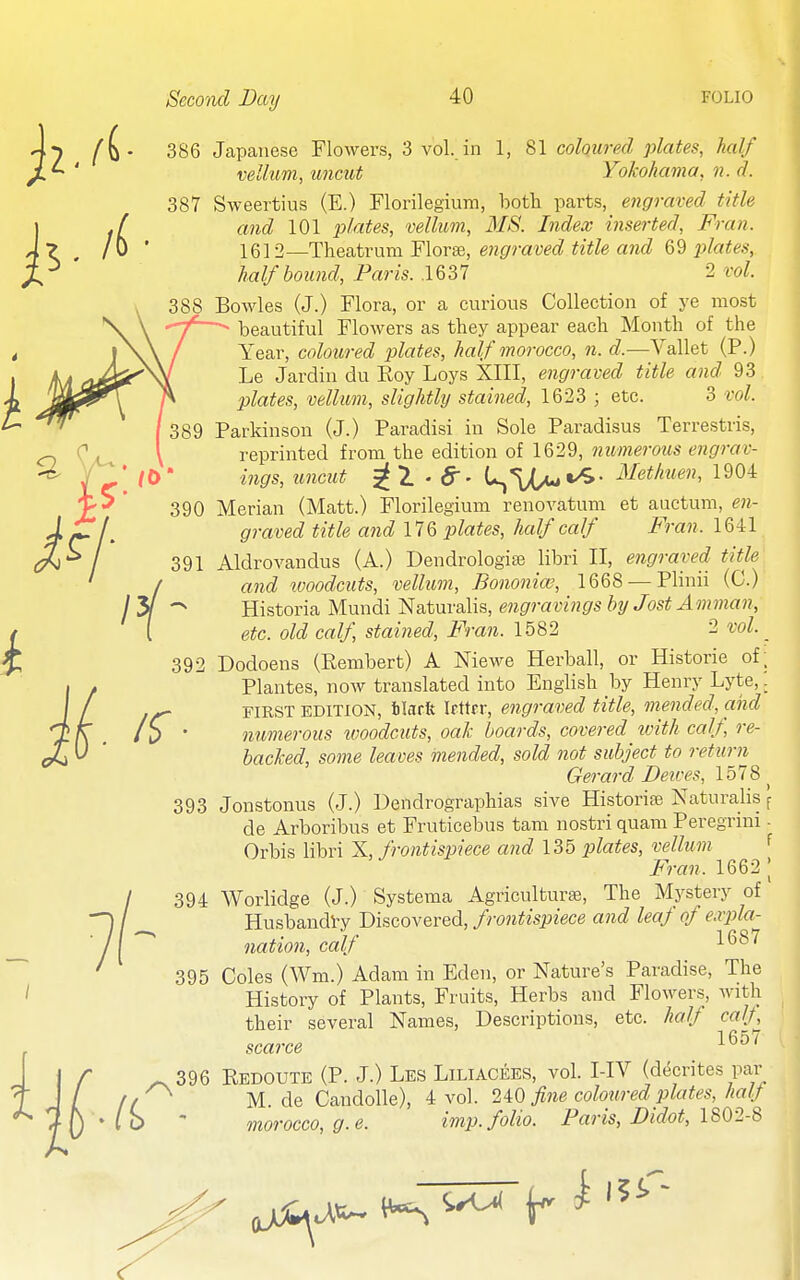 Second Day 40 FOLIO
£2. 16 -
386 Japanese Flowers, 3 vol. in 1, 81 coloured plates, half
vellum, uncut Yokohama, n. d.
387 Sweertius (E.) Florilegium, both parts, engraved title
and 101 plates, vellum, MS. Index inserted, Fran.
£3. 16 ·
1612—Theatrum Floræ, engraved title and 69 plates,
half bound, Paris. 1637 2 vol.
388 Bowles (J.) Flora, or a curious Collection of ye most
beautiful Flowers as they appear each Month of the
Year, coloured plates, half morocco, n. d.—Vallet (P.)
Le Jardin du Roy Loys XIII, engraved title and 93
plates, vellum, slightly stained, 1623 ; etc. 3 vol.
389 Parkinson (J.) Paradisi in Sole Paradisus Terrestris,
reprinted from the edition of 1629, numerous engrav-
ings, uncut £2 . 8 . Methuen, 1904
390 Merian (Matt.) Florilegium renovatum et auctum, en-
graved title and 176 plates, half calf Fran. 1641
391 Aldrovandus (A.) Dendrologiæ libri II, engraved title
and woodcuts, vellum, Bononiæ, 1668—Plinii (C.)
Historia Mundi Naturalis, engravings by Jost Amman,
etc. old calf, stained, Fran. 1582 2 vol.
392 Dodoens (Rembert) A Niewe Herball, or Historie of
Plantes, now translated into English by Henry Lyte,
FIRST EDITION, black letter, engraved title, mended, and
numerous woodcuts, oak boards, covered with calf, re-
backed, some leaves mended, sold not subject to return
Gerard Dewes, 1578
393 Jonstonus (J.) Dendrographias sive Historiæ Naturalis
de Arboribus et Fruticebus tam nostri quam Peregrini
Orbis libri X, frontispiece and 135 plates, vellum
Fran. 1662
394 Worlidge (J.) Systema Agriculturæ, The Mystery of
Husbandry Discovered, frontispiece and leaf of expla-
7/-
nation, calf 1687
395 Coles (Wm.) Adam in Eden, or Nature's Paradise, The
History of Plants, Fruits, Herbs and Flowers, with
their several Names, Descriptions, etc. half calf,
scarce 1657
396 REDOUTE (P. J.) LES LILIACÉES, vol. I-IV (décrites par
M. de Candolle), 4 vol. 240 fine coloured plates, half
morocco, g. e. imp. folio. Paris, Didot, 1802-8